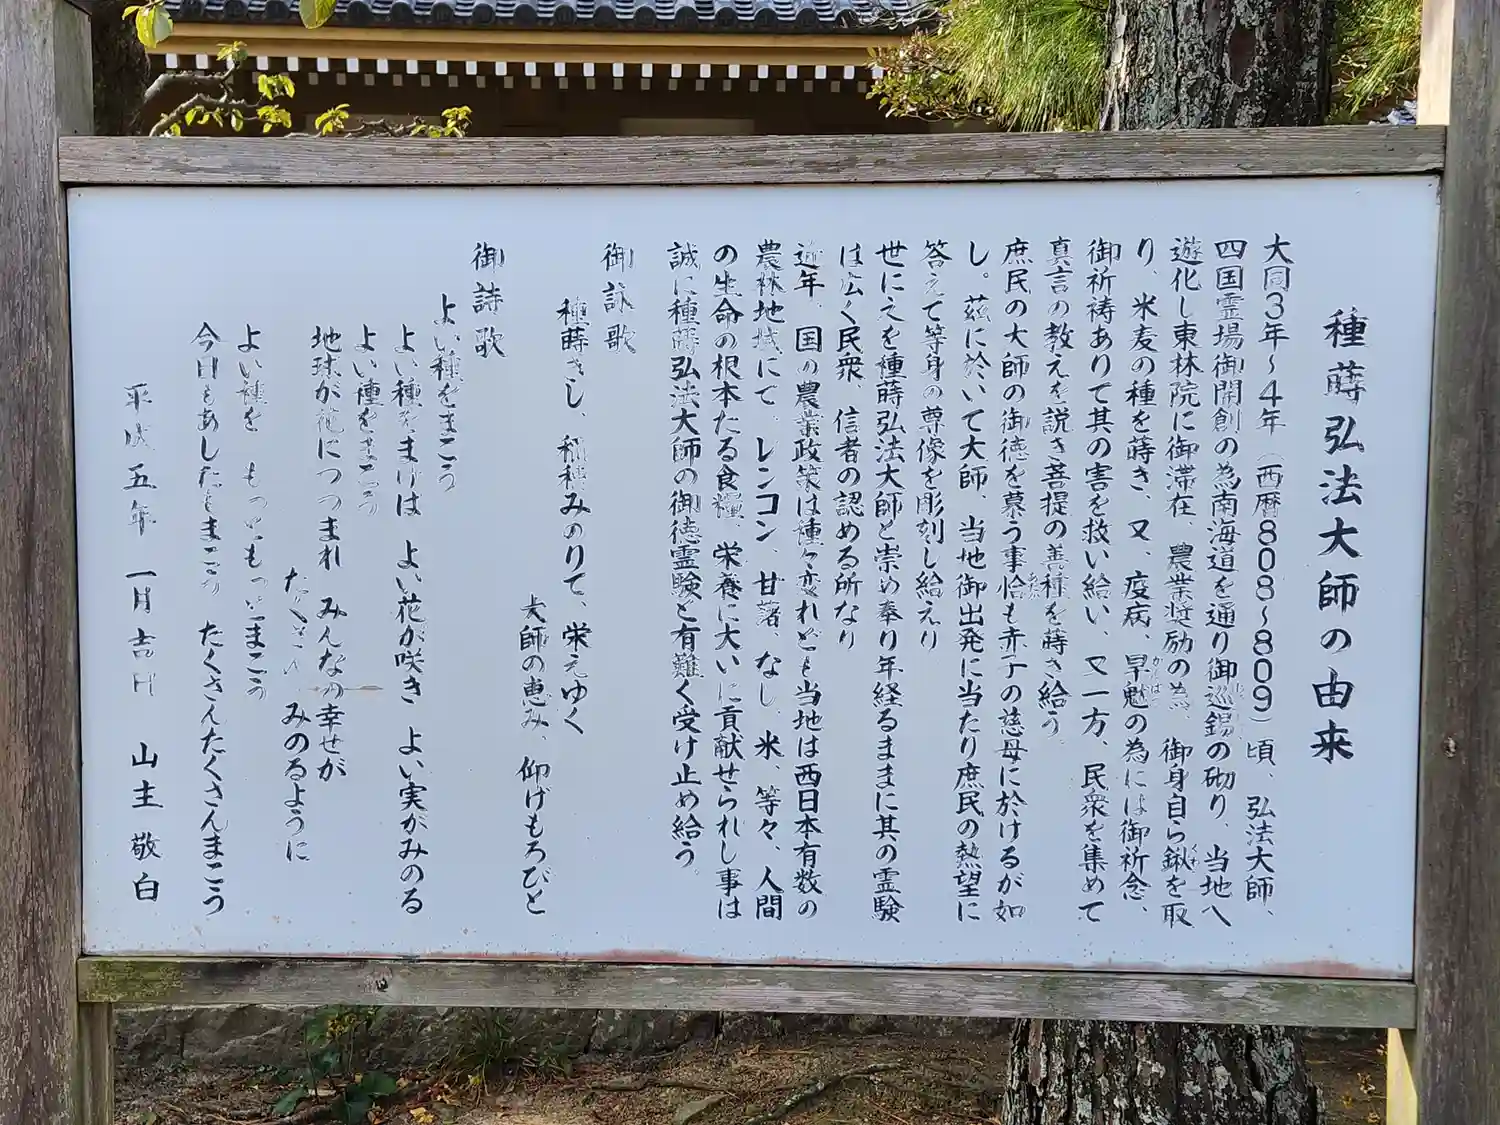 種蒔弘法大師の由来
大同3年～4年（西暦808～809）頃、弘法大師、
四国霊場御開創の為南海道を通り御巡錫の砌り、当地へ
遊化し東林院に御滞在、農業奨励の為、御身自ら鍬を取
り、米麦の種を蒔き、又、疫病、旱魃の為には御祈念、
御祈祷ありて其の害を救い給い、又一方、民衆を集めて
真言の教えを説き菩提の善種を蒔き給う。
庶民の大師の御徳を慕う事恰も赤子の慈母に於けるが如
し。茲に於いて大師、当地御出発に当たり庶民の熱望に
答えて等身の尊像を彫刻し給えり
世に之を種蒔弘法大師と崇め奉り年経るままに其の霊験
は広く民衆、信者の認める所なり
近年、国の農業政策は種々変れども当地は西日本有数の
農林地域にて、レンコン、甘藷、なし、米、等々、人間
の生命の根本たる食糧、栄養に大いに貢献せられし事は
誠に種蒔弘法大師の御徳霊験と有難く受け止め給う。
御詠歌
種蒔きし、稲種みのりて、栄えゆく
大師の恵み、仰げもろびと
御詩歌
よい種をまこう
よい種をまけば よい花が咲き よい実がみのる
よい種をまこう
地球が花につつまれ みんなの幸せが
たくさん みのるように
よい種を もっともっとまこう
今日もあしたもまこう たくさんたくさんまこう
平成五年 一月吉日 山主 敬白